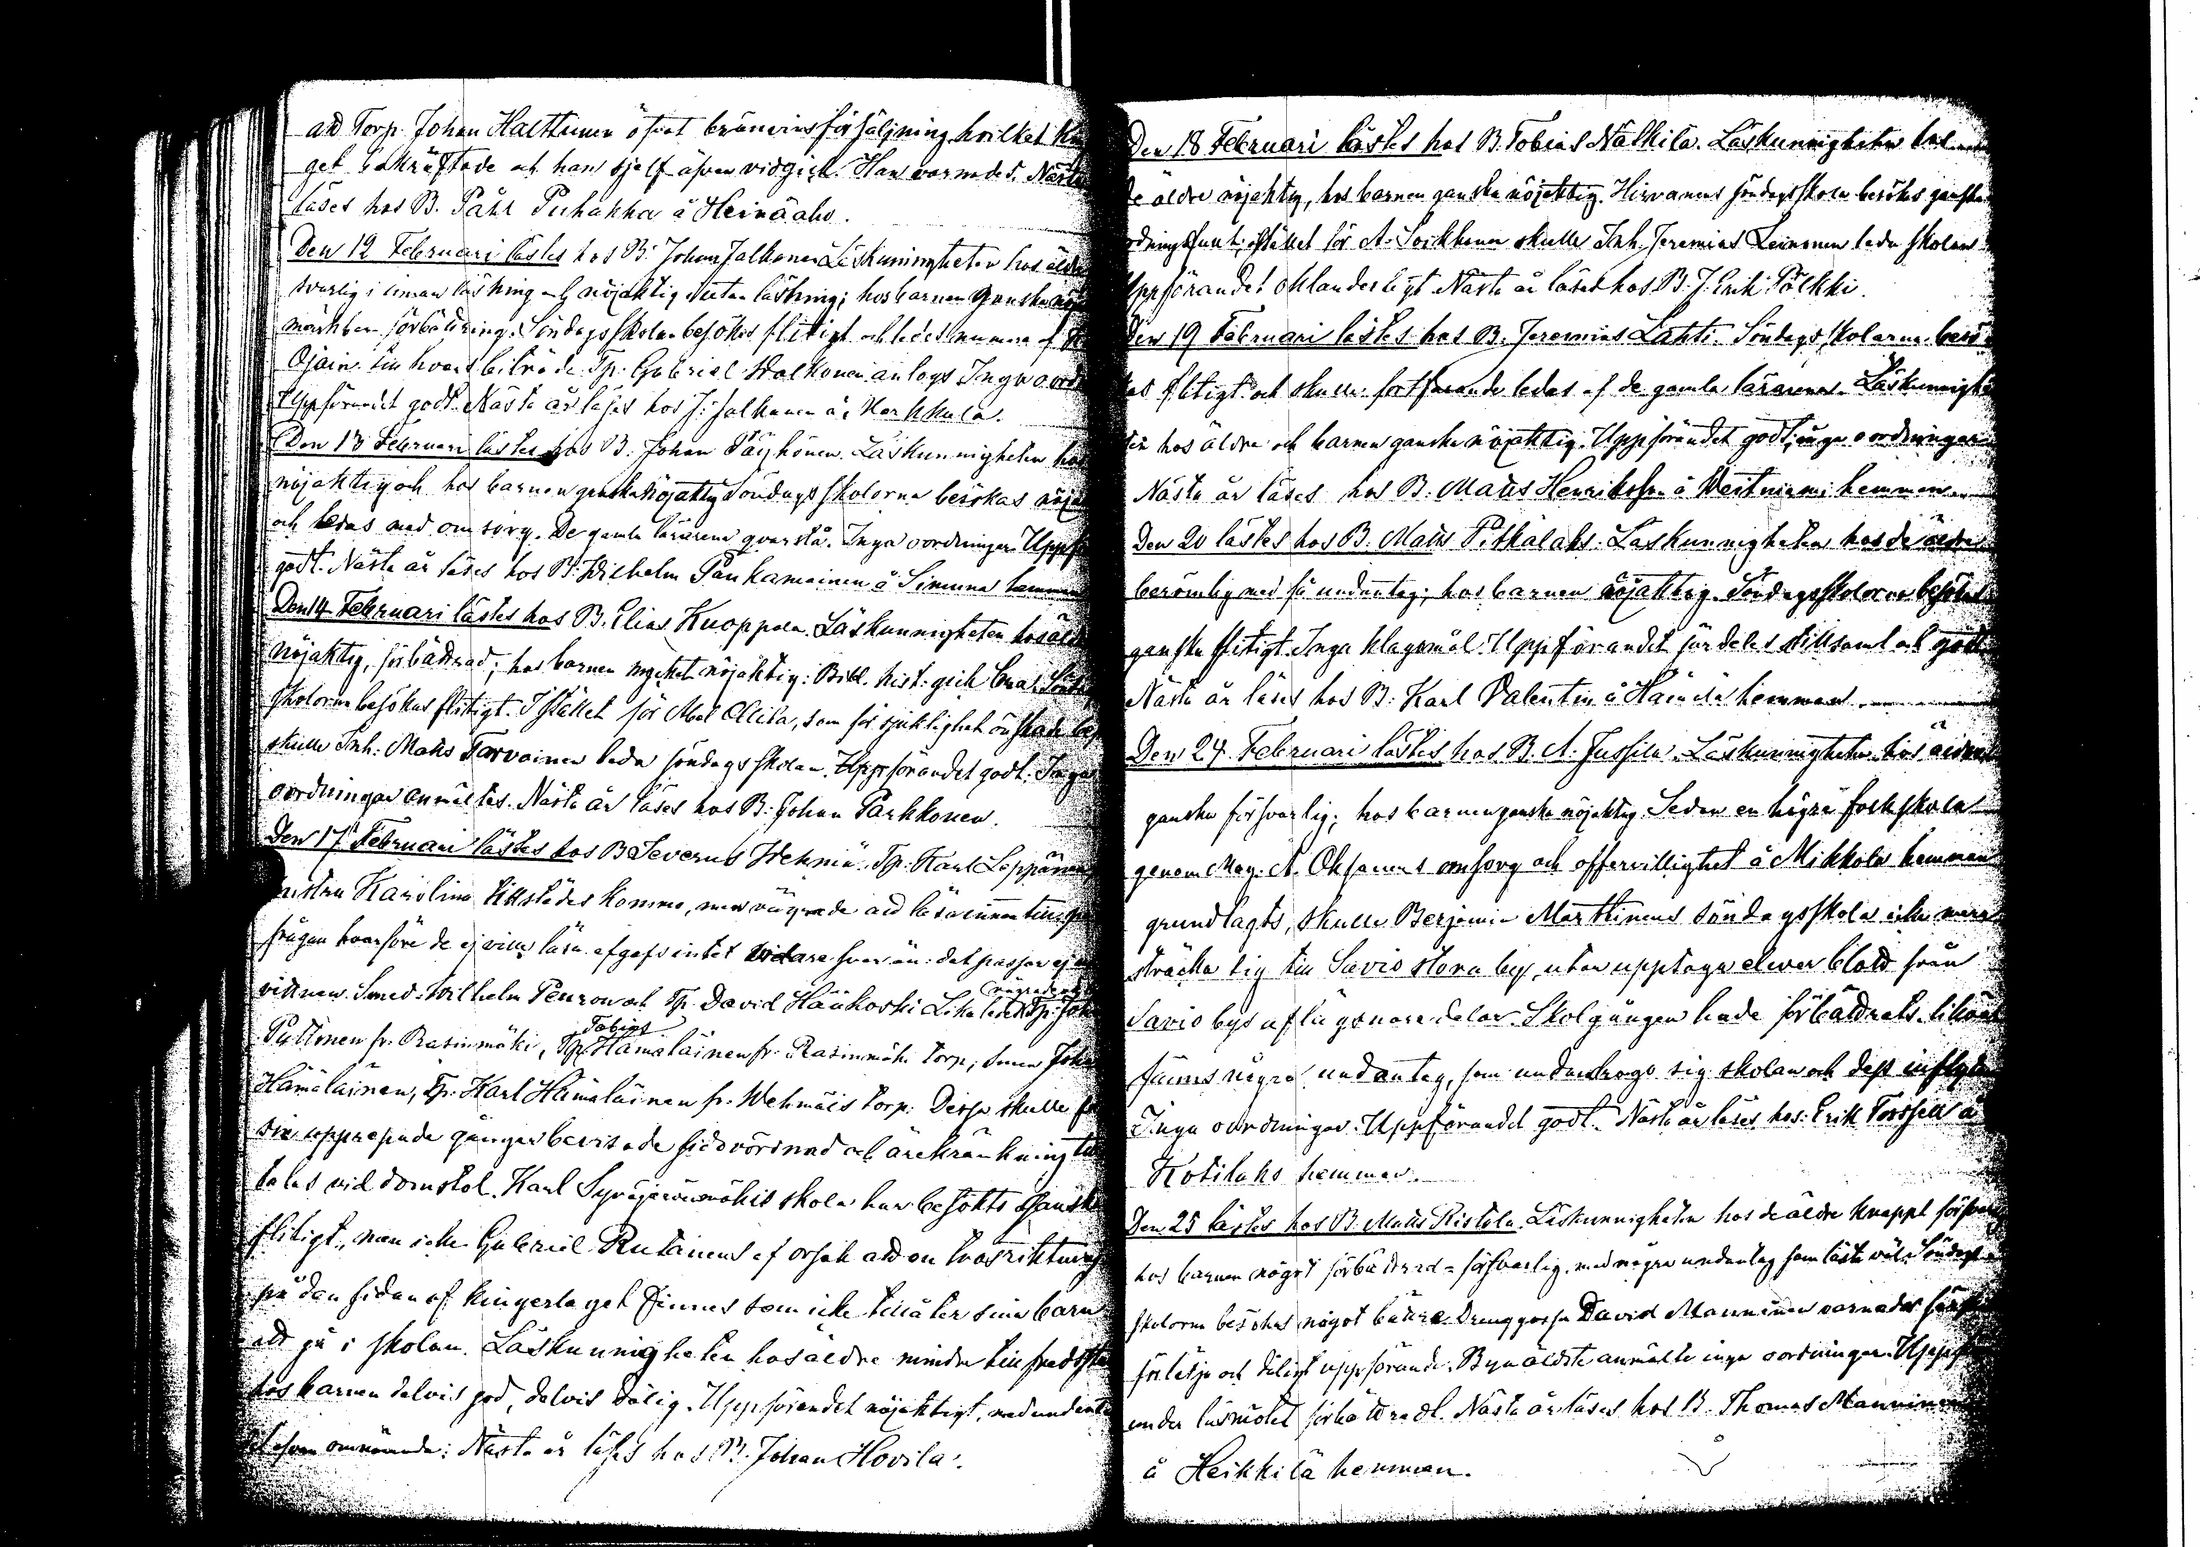 att Torp. Johan Halttunen öfvat bränvinsförsäljning hvilket
get bekräftade och han sjelf äfven vidgick. Han varnades. Nästa
läses hos B. Påhl Puhakka å Heinäaho.
Den 12 Februari lästes hos B. Johan Jalkanen Läskunnigheten hos äldre
svarlig i innan läsning och nöjaktig i utan läsning; hos barnen ganska
märkbar förbättring. Söndagsskolan besökes flitigt och ledes numera af
Ojain till hvars biträde Tp. Gabriel Walkonen antogs Inga
Uppförandet godt. Nästa år läses hos J. Jalkanen å Harkkala.
Den 13 Februari lästes hos B. Johan Päykönen. Läskunnigheten hos
nöjaktig och hos barnen ganska nöjaktig Söndagsskolorna besökas
och ledas med omsorg. De gamla lärarena qvarstå. Inga oordningar.
godt. Nästa år läses hos B. Wilhelm Pankamainen å Simuna hemman
Den 14 Februari lästes hos B. Elias Kuoppala. Läskunnigheten hos äldre
nöjaktig, förbättrad; hos barnen mycket nöjaktig: Bibl. hist. gick bra.
skolorna besökas flitigt. I stället för Abel Ollila, som för sjuklighet önskade
skulle Inh. Mats Tarvainen leda söndagsskolan. Uppförandet godt. Inga
oordningar anmältes. Nästa år läses hos B. Johan Parkkonen.
Den 17 Februari lästes hos B Severus Wehniä. Tp. Karl Leppänen
hustru Karolina tillstädes komne, men vägrade att läsa innantill; på
frågan hvarföre de ej ville läsa afgafs intet vidare svar än: det passar ej
vittnen Smed. Wilhelm Penxow och Tp. David Häkoski Lika ledes Tp. Joh
vägrade
Tobias
Pyttönen fr. Rasinmäki, Tp. Hämäläinen fr. Rasinmäki torp; Sonen Johan
Hämäläinen, Tp. Karl Hämäläinen fr. Wehmäis torp. Dessa skulle för
sin upprepade gånger bevisade sidovördnad och ärekränkning till
talas vid domstol. Karl Syväjärvenmäkis skola har besökts ganska
flitigt, men icke Gabriel Rutanens af orsak att en trosriktning
på den sidan af kingerlaget finnes som icke tillåter sina barn
att gå i skolan. Läskunnigheten hos äldre mindre tillfredsstä
hos barnen delvis god, delvis dålig. Uppförandet nöjaktigt, med undanta
ofvan omnämnda: Nästa år läses hos B. Johan Hovila.
Den 18 Februari lästes hos B. Tobias Nälkilä. Läskunnigheten hos
de äldre nöjaktig, hos barnen ganska nöjaktig. Hirvanens söndagsskola besökes ganska
ordningsfullt; i stället för A. Loikkanen skulle Inh. Jeremias Leinonen leda skolan
Uppförandet oklanderligt Nästa år läses hos B. J. Erik Pölkki.
Den 19 Februari lästes hos B. Jeremias Lahti. Söndagsskolorna besö
kas flitigt och skulle fortfarande ledas af de gamla lärarena. Läskunnighe
ten hos äldre och barnen ganska nöjaktig. Uppförandet godt; inga oordningar
Nästa år läses hos B. Mats Henriksson å Weitniemi hemman.
Den 20 lästes hos B. Mats Pitkälaks. Läskunnigheten hos de äldre
berömlig med få undantag; hos barnen nöjaktig. Söndagsskolorna besökas
ganska flitigt. Inga klagomål. Uppförandet särdeles stillsamt och godt
Nästa år läses hos B. Karl Valentin å Hämelä hemman.
Den 24 Februari lästes hos B. A. Jussila. Läskunnigheten hos äldre
ganska försvarlig; hos barnen ganska nöjaktig. Sedan en högre folkskola
genom Mag. A. Oksanens omsorg och offervillighet å Mikkola hemman
grundlagts, skulle Benjamin Marttinens söndagsskola icke mera
sträcka sig till Savio stora by, utan upptaga elever blott från
Savio bys aflägsnare delar. Skolgången hade förbättrats, likväl
fanns några undantag, som undandrogo sig skolan och dess inflytan
Inga oordningar. Uppförandet godt. Nästa år läses hos: Erik Forssell å
Kotilaks hemman.
Den 25 lästes hos B. Matts Ristola. Läskunnigheten hos de äldre knappt försvarlig
hos barnen något förbättrad = försvarlig, med några undantag som läste väl. Söndags
skolorna besökas något bättre. Drenggossen David Manninen varnades för
försletje och dåligt uppförande. Byn äldste anmälte inga oordningar.
under läsmötet förbättradt. Nästa år läses hos B. Thomas Manninen
å Heikkilä hemman.